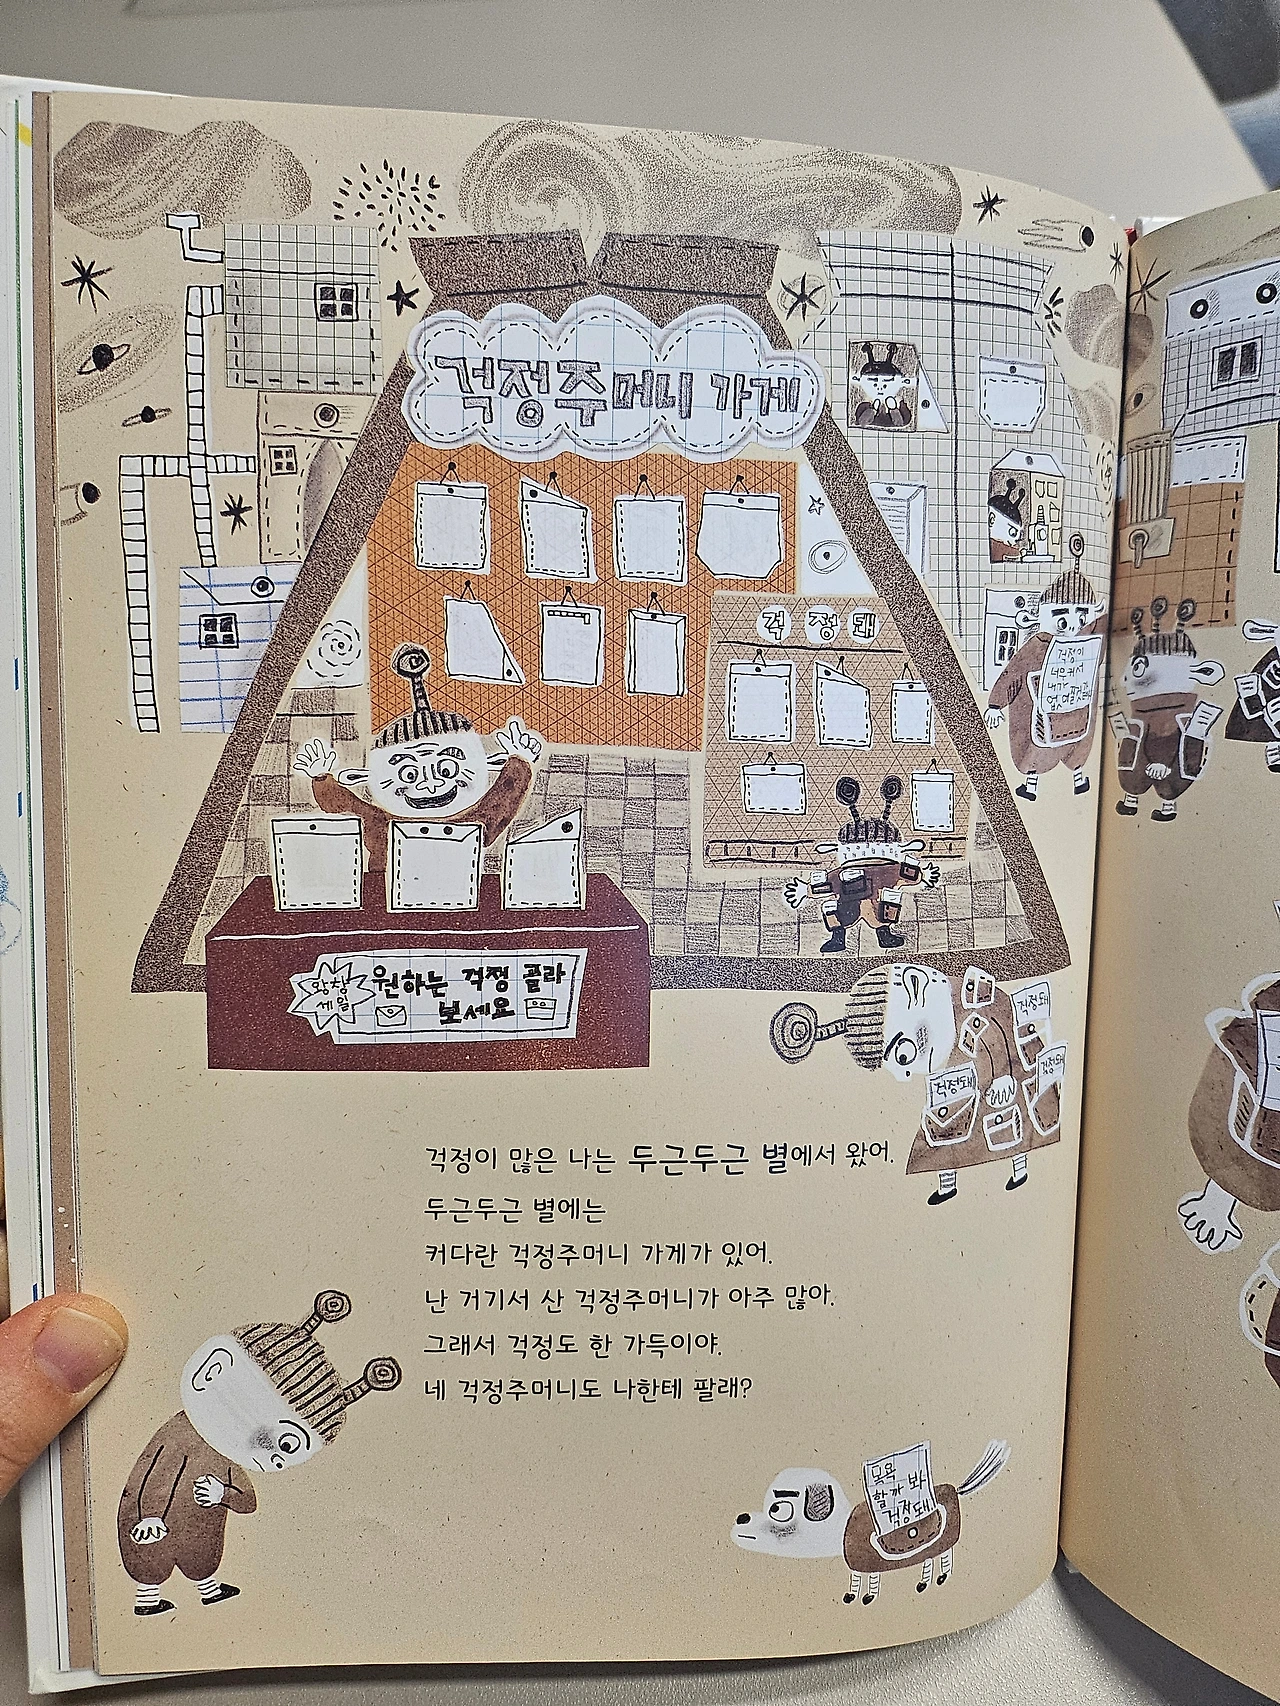 걱정주머니 가게
걱정돼
걱정이
너무 커서
내가
왕창
세일
원하는 걱정 골라
보세요
걱정돼
걱정돼
걱정돼
걱정이 많은 나는 두근두근 별에서 왔어.
두근두근 별에는
커다란 걱정주머니 가게가 있어.
난 거기서 산 걱정주머니가 아주 많아.
그래서 걱정도 한 가득이야.
네 걱정주머니도 나한테 팔래?
목욕
할까 봐
걱정돼